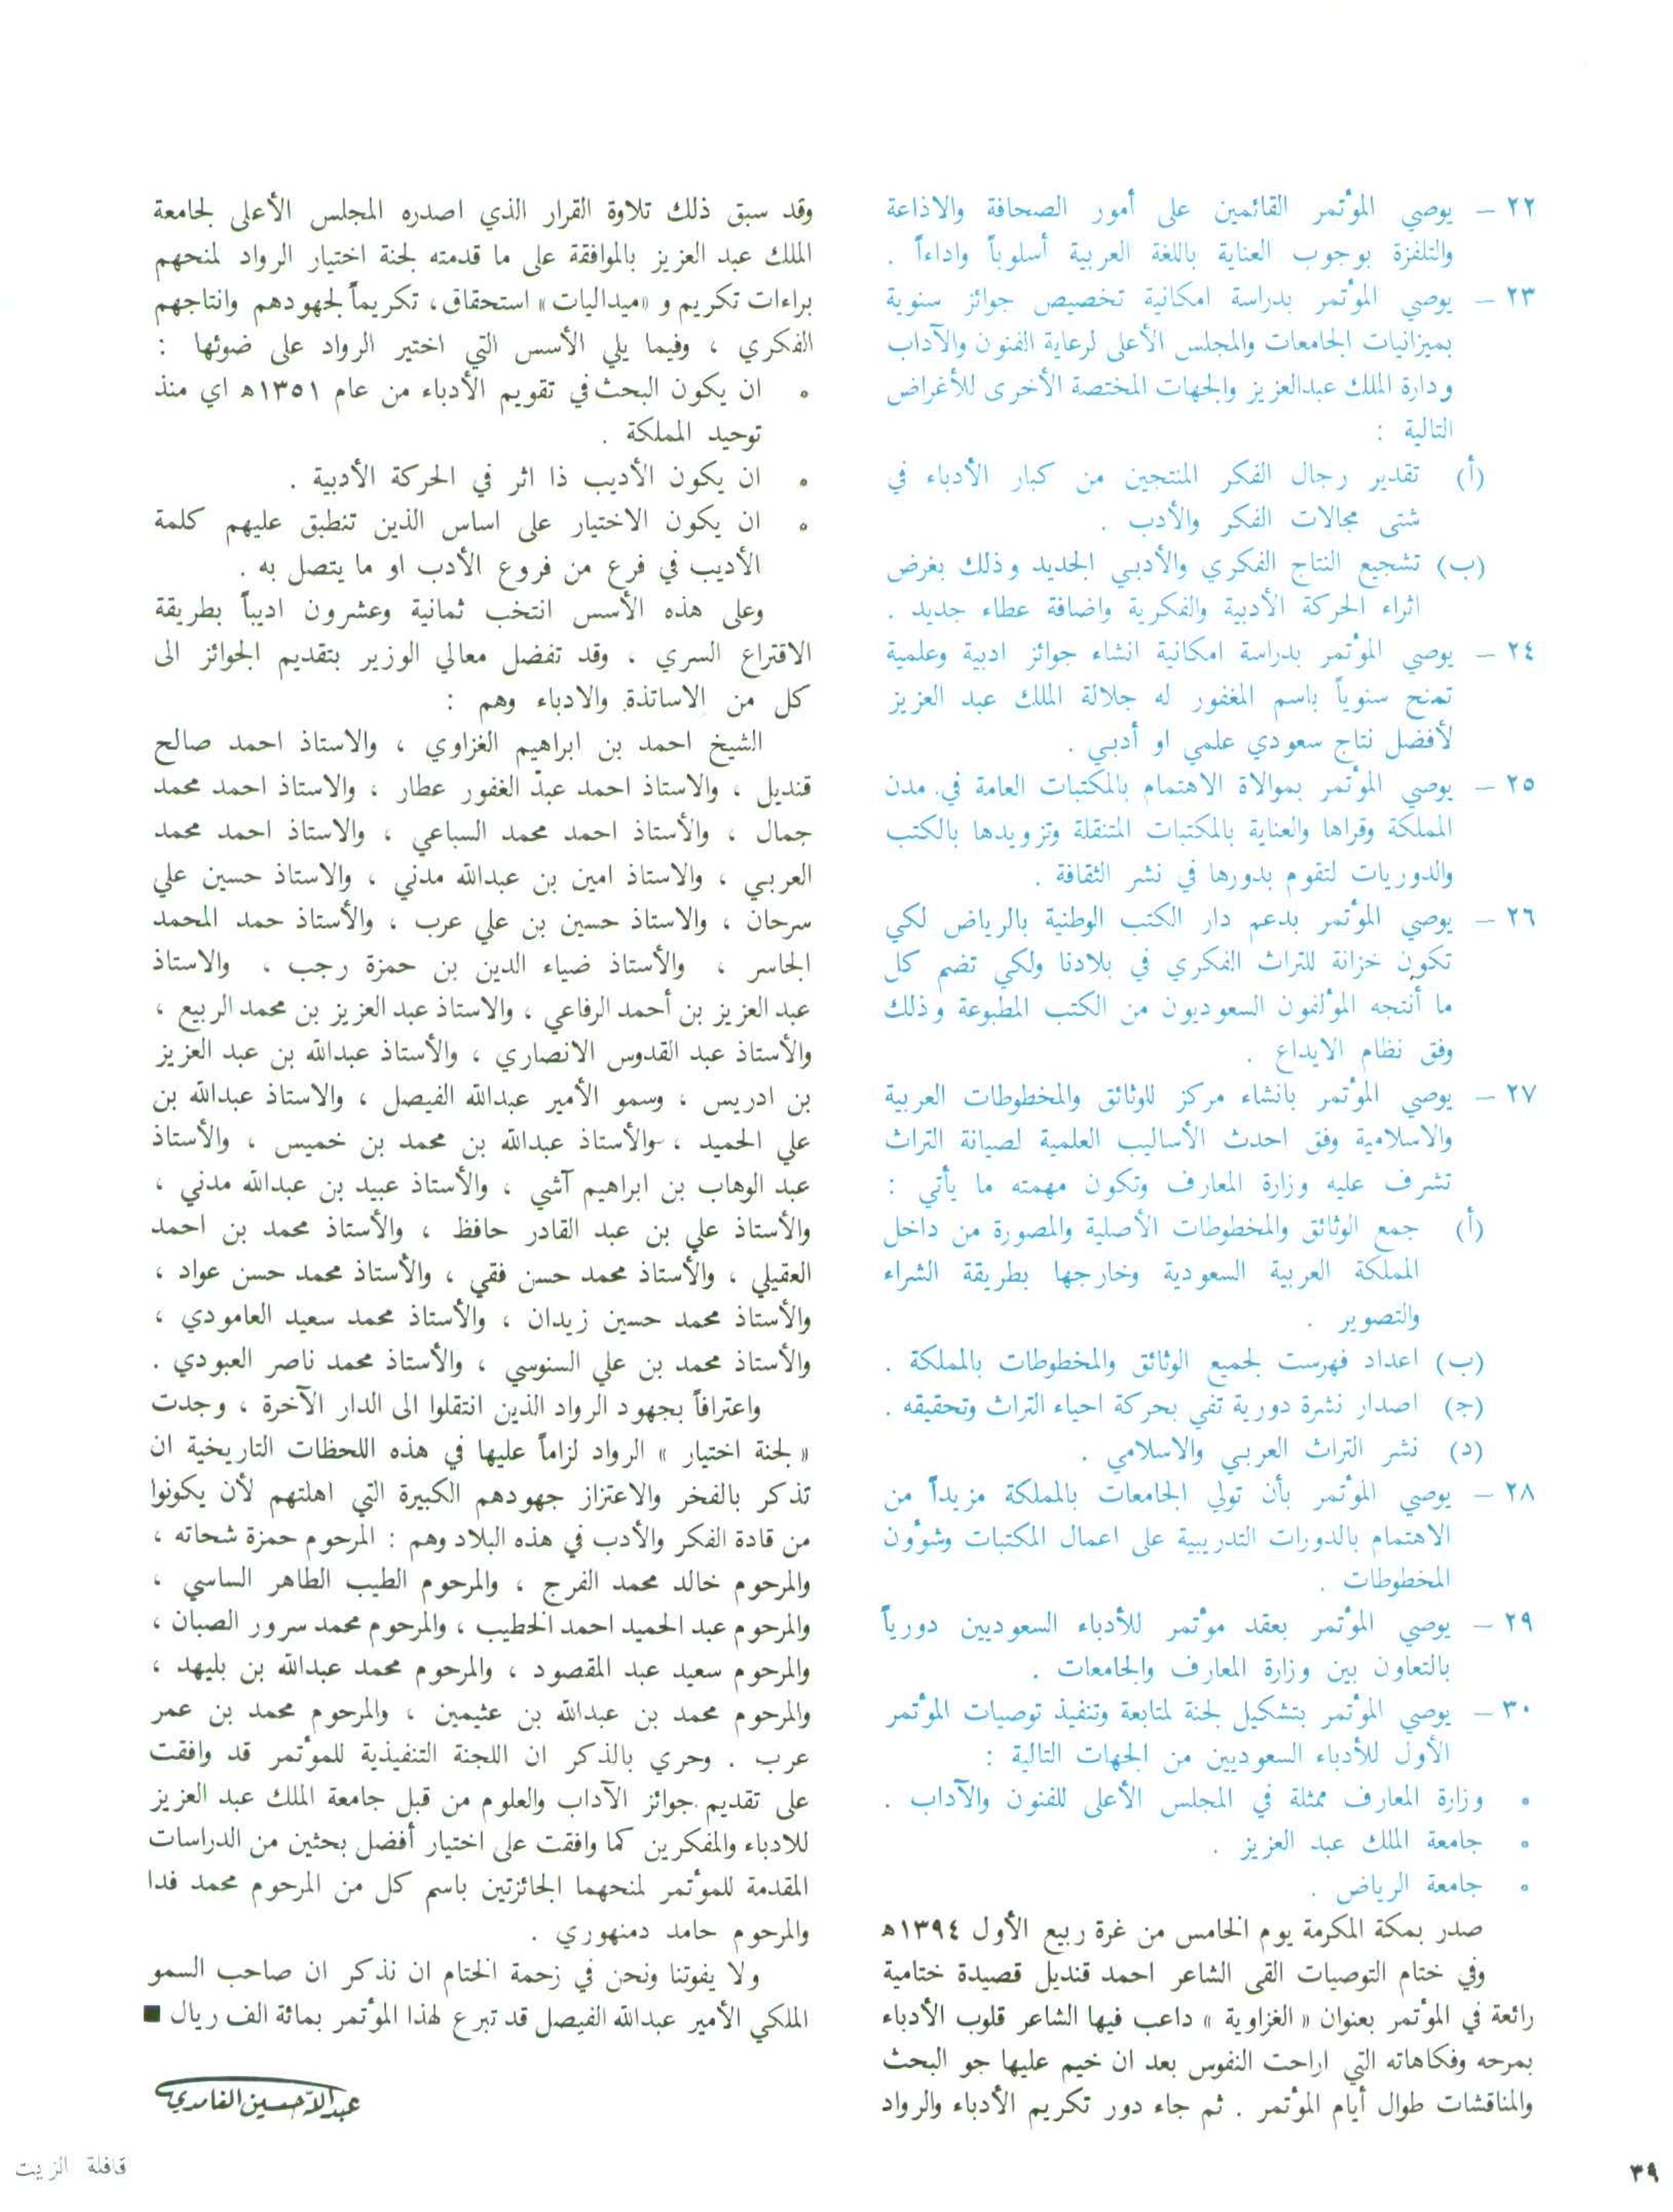 ٢٢ – يوصي المؤتمر القائمين على أمور الصحافة والاذاعة
والتلفزة بوجوب العناية باللغة العربية أسلوباً واداءاً .
٢٣ – يوصي المؤتمر بدراسة امكانية تخصيص جوائز سنوية
بميزانيات الجامعات والمجلس الأعلى لرعاية الفنون والآداب
ودارة الملك عبدالعزيز والجهات المختصة الأخرى للأغراض
التالية :
(أ) تقدير رجال الفكر المنتجين من كبار الأدباء في
شتى مجالات الفكر والأدب .
(ب) تشجيع النتاج الفكري والأدبي الجديد وذلك بغرض
اثراء الحركة الأدبية والفكرية واضافة عطاء جديد .
٢٤ – يوصي المؤتمر بدراسة امكانية انشاء جوائز ادبية وعلمية
تمنح سنوياً باسم المغفور له جلالة الملك عبد العزيز
لأفضل نتاج سعودي علمي او أدبي .
٢٥ – يوصي المؤتمر بموالاة الاهتمام بالمكتبات العامة في مدن
المملكة وقراها والعناية بالمكتبات المتنقلة وتزويدها بالكتب
والدوريات لتقوم بدورها في نشر الثقافة .
٢٦ – يوصي المؤتمر بدعم دار الكتب الوطنية بالرياض لكي
تكون خزانة للتراث الفكري في بلادنا ولكي تضم كل
ما أنتجه المؤلفون السعوديون من الكتب المطبوعة وذلك
وفق نظام الايداع .
٢٧ – يوصي المؤتمر بانشاء مركز للوثائق والمخطوطات العربية
والاسلامية وفق احدث الأساليب العلمية لصيانة التراث
تشرف عليه وزارة المعارف وتكون مهمته ما يأتي :
(أ) جمع الوثائق والمخطوطات الأصلية والمصورة من داخل
المملكة العربية السعودية وخارجها بطريقة الشراء
والتصوير .
(ب) اعداد فهرست لجميع الوثائق والمخطوطات بالمملكة .
(ج) اصدار نشرة دورية تفي بحركة احياء التراث وتحقيقه .
(د) نشر التراث العربي والاسلامي .
٢٨ – يوصي المؤتمر بأن تولي الجامعات بالمملكة مزيداً من
الاهتمام بالدورات التدريبية على اعمال المكتبات وشؤون
المخطوطات .
٢٩ – يوصي المؤتمر بعقد مؤتمر للأدباء السعوديين دورياً
بالتعاون بين وزارة المعارف والجامعات .
٣٠ – يوصي المؤتمر بتشكيل لجنة لمتابعة وتنفيذ توصيات المؤتمر
الأول للأدباء السعوديين من الجهات التالية :
• وزارة المعارف ممثلة في المجلس الأعلى للفنون والآداب .
• جامعة الملك عبد العزيز .
• جامعة الرياض .
صدر بمكة المكرمة يوم الخامس من غرة ربيع الأول ١٣٩٤ه
وفي ختام التوصيات القى الشاعر احمد قنديل قصيدة ختامية
رائعة في المؤتمر بعنوان « الغزاوية » داعب فيها الشاعر قلوب الأدباء
بمرحه وفكاهاته التي اراحت النفوس بعد ان خيم عليها جو البحث
والمناقشات طوال أيام المؤتمر . ثم جاء دور تكريم الأدباء والرواد
وقد سبق ذلك تلاوة القرار الذي اصدره المجلس الأعلى لجامعة
الملك عبد العزيز بالموافقة على ما قدمته لجنة اختيار الرواد لمنحهم
براءات تكريم و «ميداليات» استحقاق، تكريماً لجهودهم وانتاجهم
الفكري ، وفيما يلي الأسس التي اختير الرواد على ضوئها :
• ان يكون البحث في تقويم الأدباء من عام ١٣٥١ه اي منذ
توحيد المملكة .
• ان يكون الأديب ذا اثر في الحركة الأدبية .
• ان يكون الاختيار على اساس الذين تنطبق عليهم كلمة
الأديب في فرع من فروع الأدب او ما يتصل به .
وعلى هذه الأسس انتخب ثمانية وعشرون اديباً بطريقة
الاقتراع السري ، وقد تفضل معالي الوزير بتقديم الجوائز الى
كل من الاساتذة والادباء وهم :
الشيخ احمد بن ابراهيم الغزاوي ، والاستاذ احمد صالح
قنديل ، والاستاذ احمد عبد الغفور عطار ، والاستاذ احمد محمد
جمال ، والأستاذ احمد محمد السباعي ، والاستاذ احمد محمد
العربي ، والاستاذ امين بن عبدالله مدني ، والاستاذ حسين علي
سرحان ، والاستاذ حسين بن علي عرب ، والأستاذ حمد المحمد
الجاسر ، والأستاذ ضياء الدين بن حمزة رجب ، والاستاذ
عبد العزيز بن أحمد الرفاعي ، والاستاذ عبد العزيز بن محمد الربيع ،
والأستاذ عبد القدوس الانصاري ، والأستاذ عبدالله بن عبد العزيز
بن ادريس ، وسمو الأمير عبدالله الفيصل ، والاستاذ عبدالله بن
علي الحميد ، والأستاذ عبدالله بن محمد بن خميس ، والأستاذ
عبد الوهاب بن ابراهيم آشي ، والأستاذ عبيد بن عبدالله مدني ،
والأستاذ علي بن عبد القادر حافظ ، والأستاذ محمد بن احمد
العقيلي ، والأستاذ محمد حسن فقي ، والأستاذ محمد حسن عواد ،
والأستاذ محمد حسين زيدان ، والأستاذ محمد سعيد العامودي ،
والأستاذ محمد بن علي السنوسي ، والأستاذ محمد ناصر العبودي .
واعترافاً بجهود الرواد الذين انتقلوا الى الدار الآخرة ، وجدت
« لجنة اختيار » الرواد لزاماً عليها في هذه اللحظات التاريخية ان
تذكر بالفخر والاعتزاز جهودهم الكبيرة التي اهلتهم لأن يكونوا
من قادة الفكر والأدب في هذه البلاد وهم : المرحوم حمزة شحاته ،
والمرحوم خالد محمد الفرج ، والمرحوم الطيب الطاهر الساسي ،
والمرحوم عبد الحميد احمد الخطيب ، والمرحوم محمد سرور الصبان ،
والمرحوم سعيد عبد المقصود ، والمرحوم محمد عبدالله بن بليهد ،
والمرحوم محمد بن عبدالله بن عثيمين ، والمرحوم محمد بن عمر
عرب . وحري بالذكر ان اللجنة التنفيذية للمؤتمر قد وافقت
على تقديم جوائز الآداب والعلوم من قبل جامعة الملك عبد العزيز
للادباء والمفكرين كما وافقت على اختيار أفضل بحثين من الدراسات
المقدمة للمؤتمر لمنحهما الجائزتين باسم كل من المرحوم محمد فدا
والمرحوم حامد دمنهوري .
ولا يفوتنا ونحن في زحمة الختام ان نذكر ان صاحب السمو
الملكي الأمير عبدالله الفيصل قد تبرع لهذا المؤتمر بمائة الف ريال ■
عبدالله حسين الغامدي
٣٩
قافلة الزيت